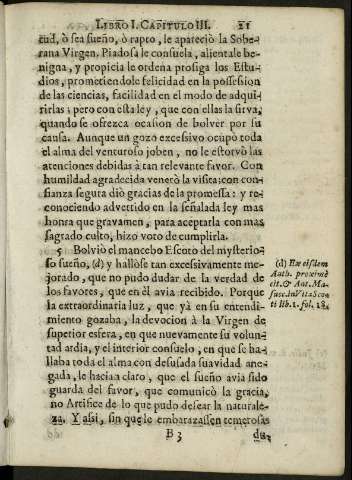 LIBRO I. CAPITULO III. 21
tud, ò sea sueño, ò rapto, le apareciò la Sobe-
rana Virgen. Piadosa le consuela, alientale be-
nigna, y propicia le ordena prosiga los Estu-
dios, prometiendole felicidad en la possession
de las ciencias, facilidad en el modo de adqui-
rirlas; pero con esta ley, que con ellas la sirva,
quando se ofrezca ocasion de bolver por su
causa. Aunque un gozo excessivo ocupò toda
el alma del venturoso joben, no le estorvò las
atenciones debidas à tan relevante favor. Con
humildad agradecida venerò la visita: con con-
fianza segura diò gracias de la promessa: y re-
conociendo advertido en la señalada ley mas
honra que gravamen, para aceptarla con mas
sagrado culto, hizo voto de cumplirla.
5 Bolviò el mancebo Escoto del mysterio-
so sueño, (d) y hallòse tan excessivamente me-
jorado, que no pudo dudar de la verdad de
los favores, que en èl avia recibido. Porque
la extraordinaria luz, que yà en su entendi-
miento gozaba, la devocion à la Virgen de
superior esfera, en que nuevamente su volun-
tad ardia, y el interior consuelo, en que se ha-
llaba toda el alma con desusada suavidad ane-
gada, le hacia claro, que el sueño avia sido
guarda del favor, que comunicò la gracia,
no Artifice de lo que pudo desear la naturale-
za. Y assi, sin que le embarazassen temerosas
B 3 du-
(d) Ex eisdem
Auth. proximè
cit. & Ant. Ma-
fuc. in Vita Sco-
ti lib. 1. fol. 18.